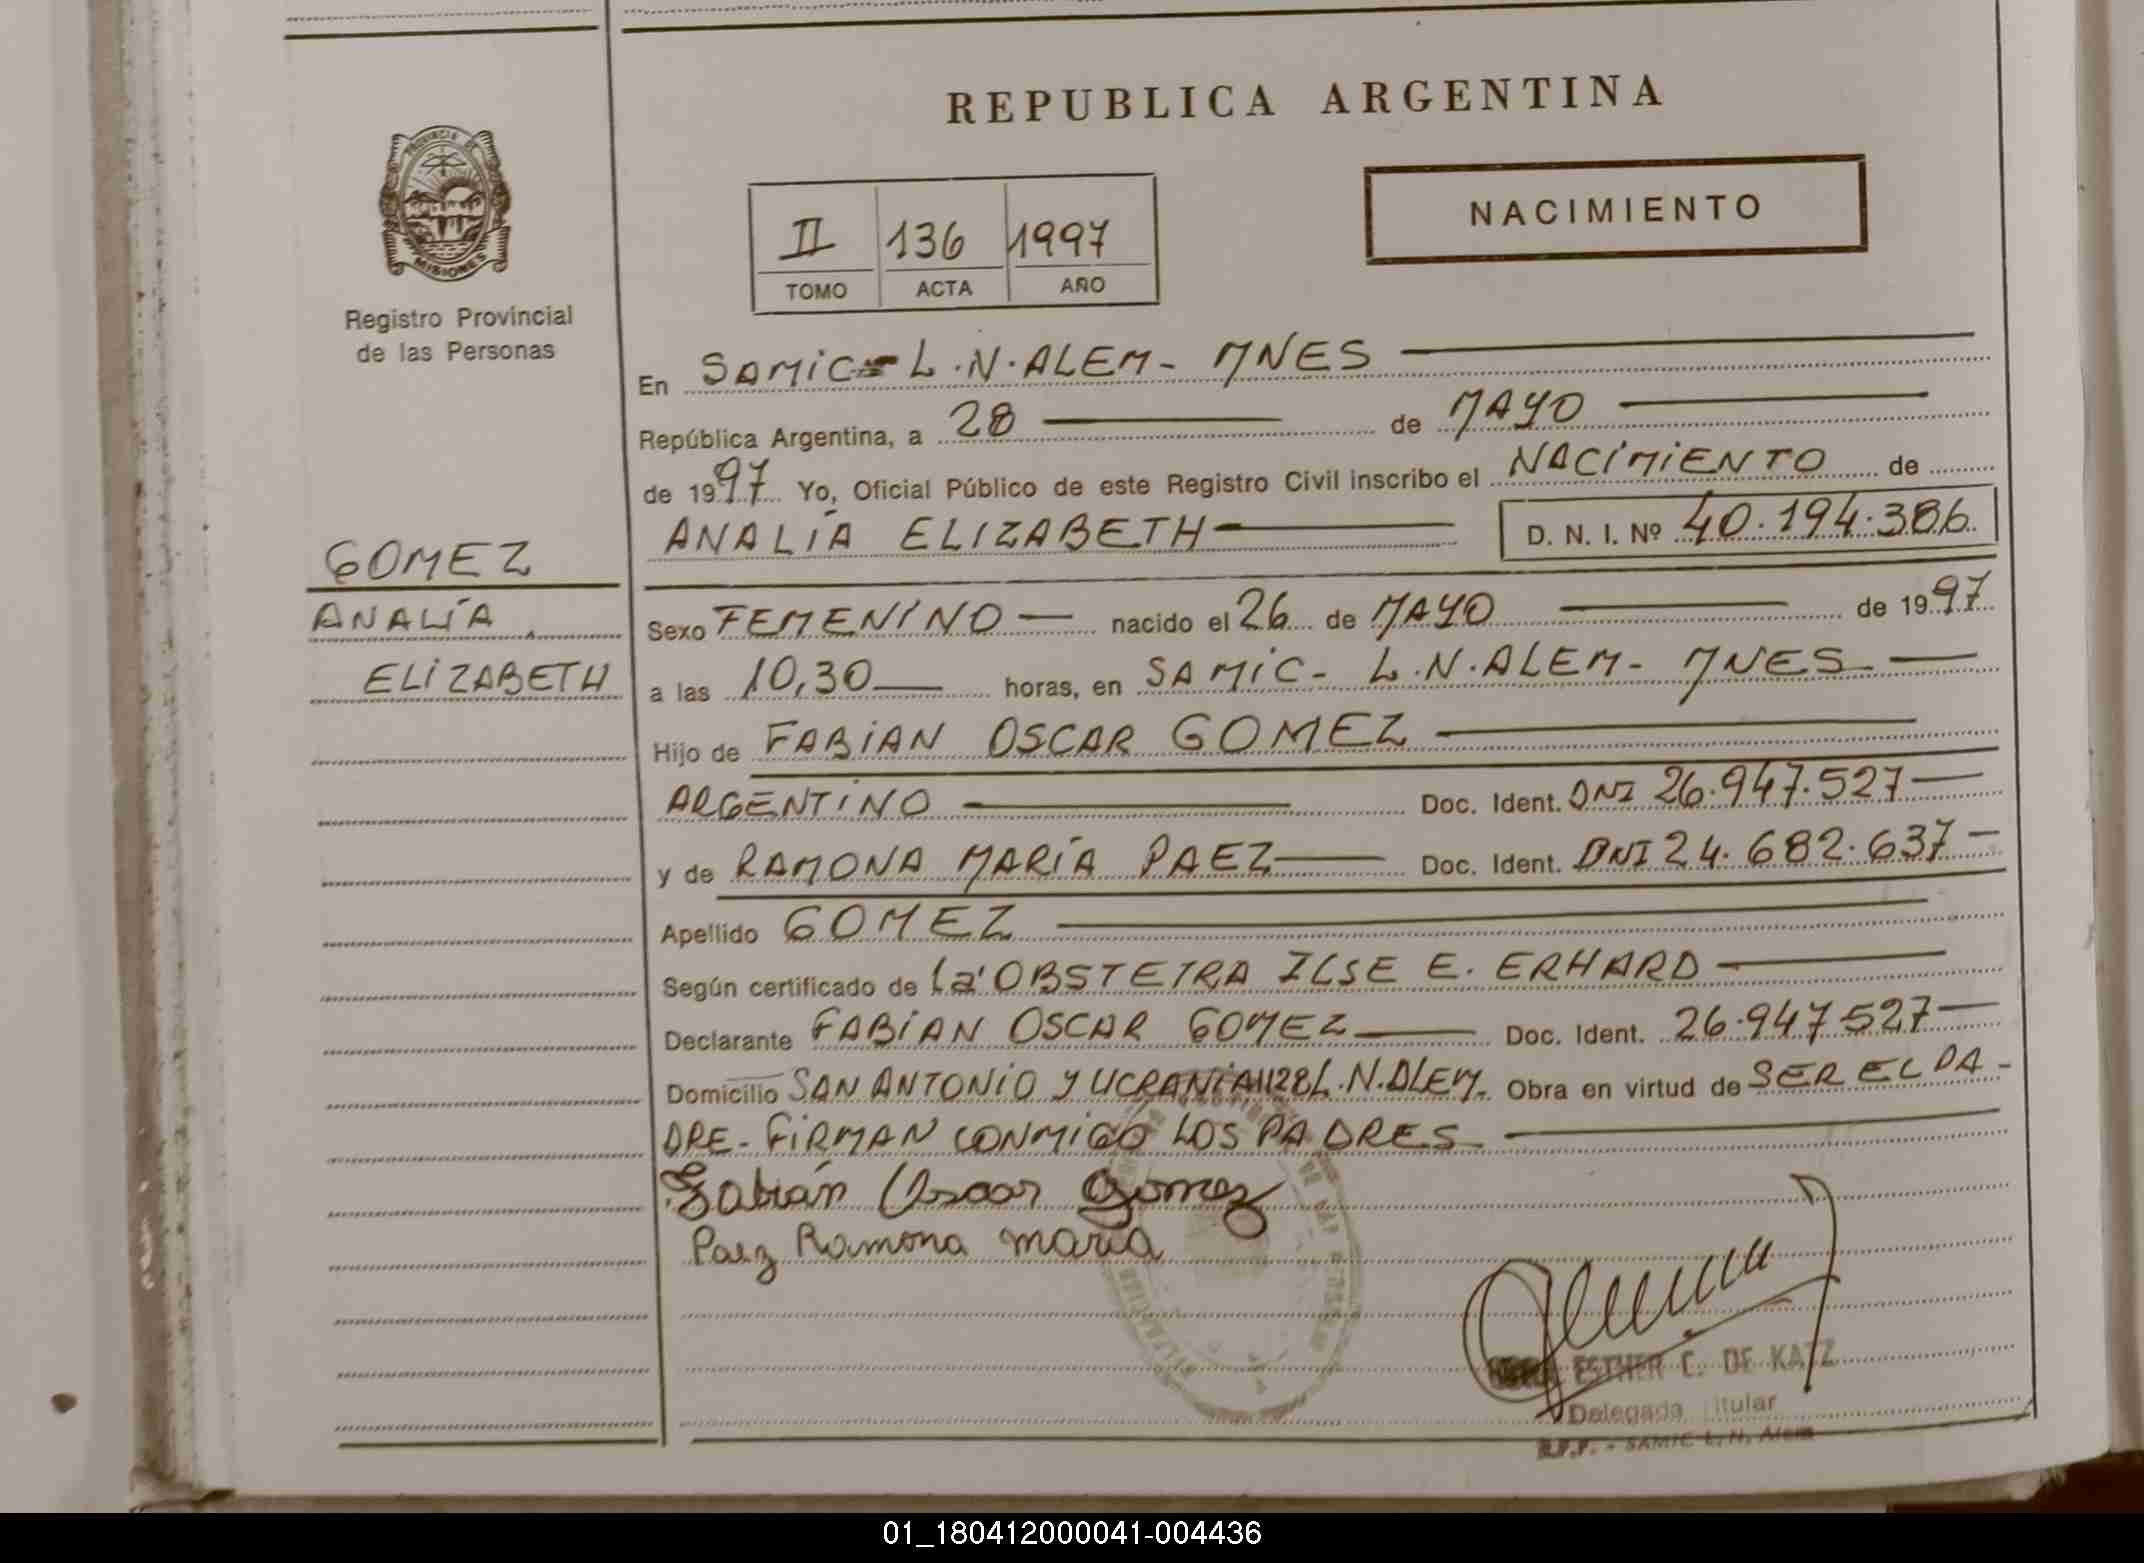 REPUBLICA ARGENTINA
PROVINCIA DE
MISIONES
Registro Provincial
de las Personas
II 136 1997
TOMO ACTA AÑO
NACIMIENTO
En SAMIC - L.N.ALEM - MNES
República Argentina, a 28 de MAYO
de 1997 Yo, Oficial Público de este Registro Civil inscribo el NACIMIENTO de
ANALÍA ELIZABETH D. N. I. Nº 40.194.386
GOMEZ
ANALÍA
ELIZABETH
Sexo FEMENINO nacido el 26 de MAYO de 1997
a las 10,30 horas, en SAMIC - L.N.ALEM - MNES
Hijo de FABIAN OSCAR GOMEZ
ARGENTINO Doc. Ident. DNI 26.947.527
y de RAMONA MARÍA PAEZ Doc. Ident. DNI 24.682.637
Apellido GOMEZ
Según certificado de la OBSTETRA ILSE E. ERHARD
Declarante FABIAN OSCAR GOMEZ Doc. Ident. 26.947.527
Domicilio SAN ANTONIO Y UCRANIA 1128 L.N.ALEM. Obra en virtud de SER EL PA-
DRE - FIRMAN CONMIGO LOS PADRES
Fabián Oscar Gomez
Paez Ramona María
ESTHER C. DE KATZ
Delegada Titular
R.P.P. - SAMIC L. N. Alem
01_180412000041-004436